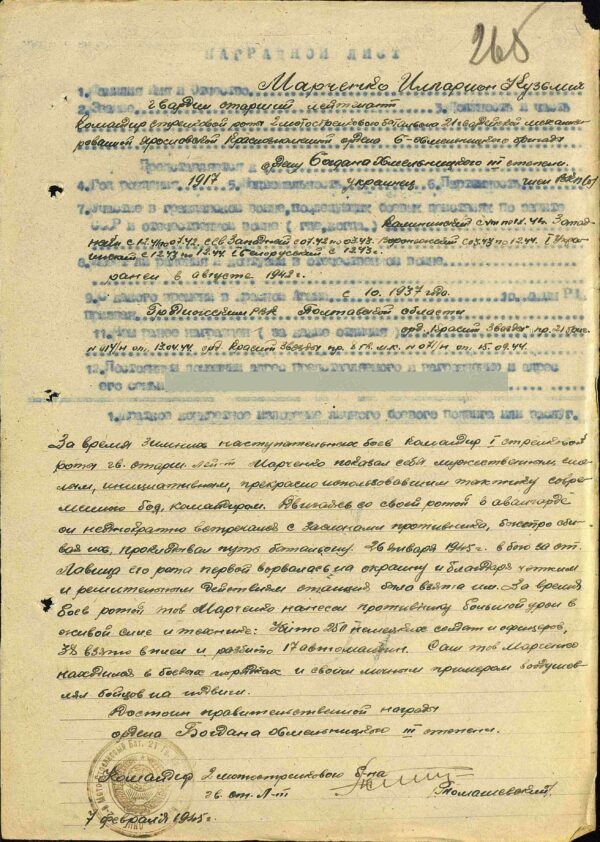 265
НАГРАДНОЙ ЛИСТ
1. Фамилия Имя и Отчество Марченко Иларион Кузьмич
2. Звание гвардии старший лейтенант 3. Должность и часть
командир стрелковой роты 2 мотострелкового батальона 21 гвардейской механизи
рованной Ярославской Краснознаменной ордена Б-Хмельницкого бригады
Представляется к ордену Богдана Хмельницкого III степени.
4. Год рождения 1917 5. Национальность украинец 6. Партийность член ВКП(б)
7. Участие в гражданской войне, последующих боевых действиях по защите
СССР и отечественной войне (где, когда) Калининский с
с 12.41 по 07.42, Сев Западный с 07.42 по 03.43. Воронежский с 03.43 по 12.44. I Украи
инский с 12.43 по 12.44. I Белорусский с
8. Имеет ли ранения и контузии в отечественной войне.
ранен в августе 1942 г.
9. С какого времени в красной Армии с 10. 1937 года. 10. Каким РВК
призван Полтавской области
11. Чем ранее награжден (за какие отличия) орд. Красной Звезды пр. 21
N 014/н от 13.04.44. орд. Красной Звезды пр. 8 гв. м.к. N 071/н от 15.09.44.
12. Постоянный домашний адрес представляемого к награждению и адрес
его семьи
1. Краткое конкретное изложение личного боевого подвига или заслуг.
За время зимних наступательных боев командир I стрелковой
роты гв. старш. лей-т Марченко показал себя мужественным, сме
лым, инициативным, прекрасно использовавшим тактику совре
менного боя, командиром. Двигаясь со своей ротой в авангарде
он неоднократно встречался с заслонами противника, быстро сби
вая их, прокладывал путь батальону. 26 января 1945 г. в бою за ст.
его рота первой ворвалась на окраину и благодаря четким
и решительным действиям станция была взята им. За время
боев ротой тов Марченко нанесен противнику большой урон в
живой силе и технике: Убито 250 немецких солдат и офицеров,
38 взято в плен и разбито 17 автомашин. Сам тов Марченко
находился в боевых порядках и своим личным примером воодушев
лял бойцов на подвиги.
Достоин правительственной награды
ордена Богдана Хмельницкого III степени.
Командир 2 мотострелкового б-на
гв. ст. л-т /Ромашевский/
7 февраля 1945 г.